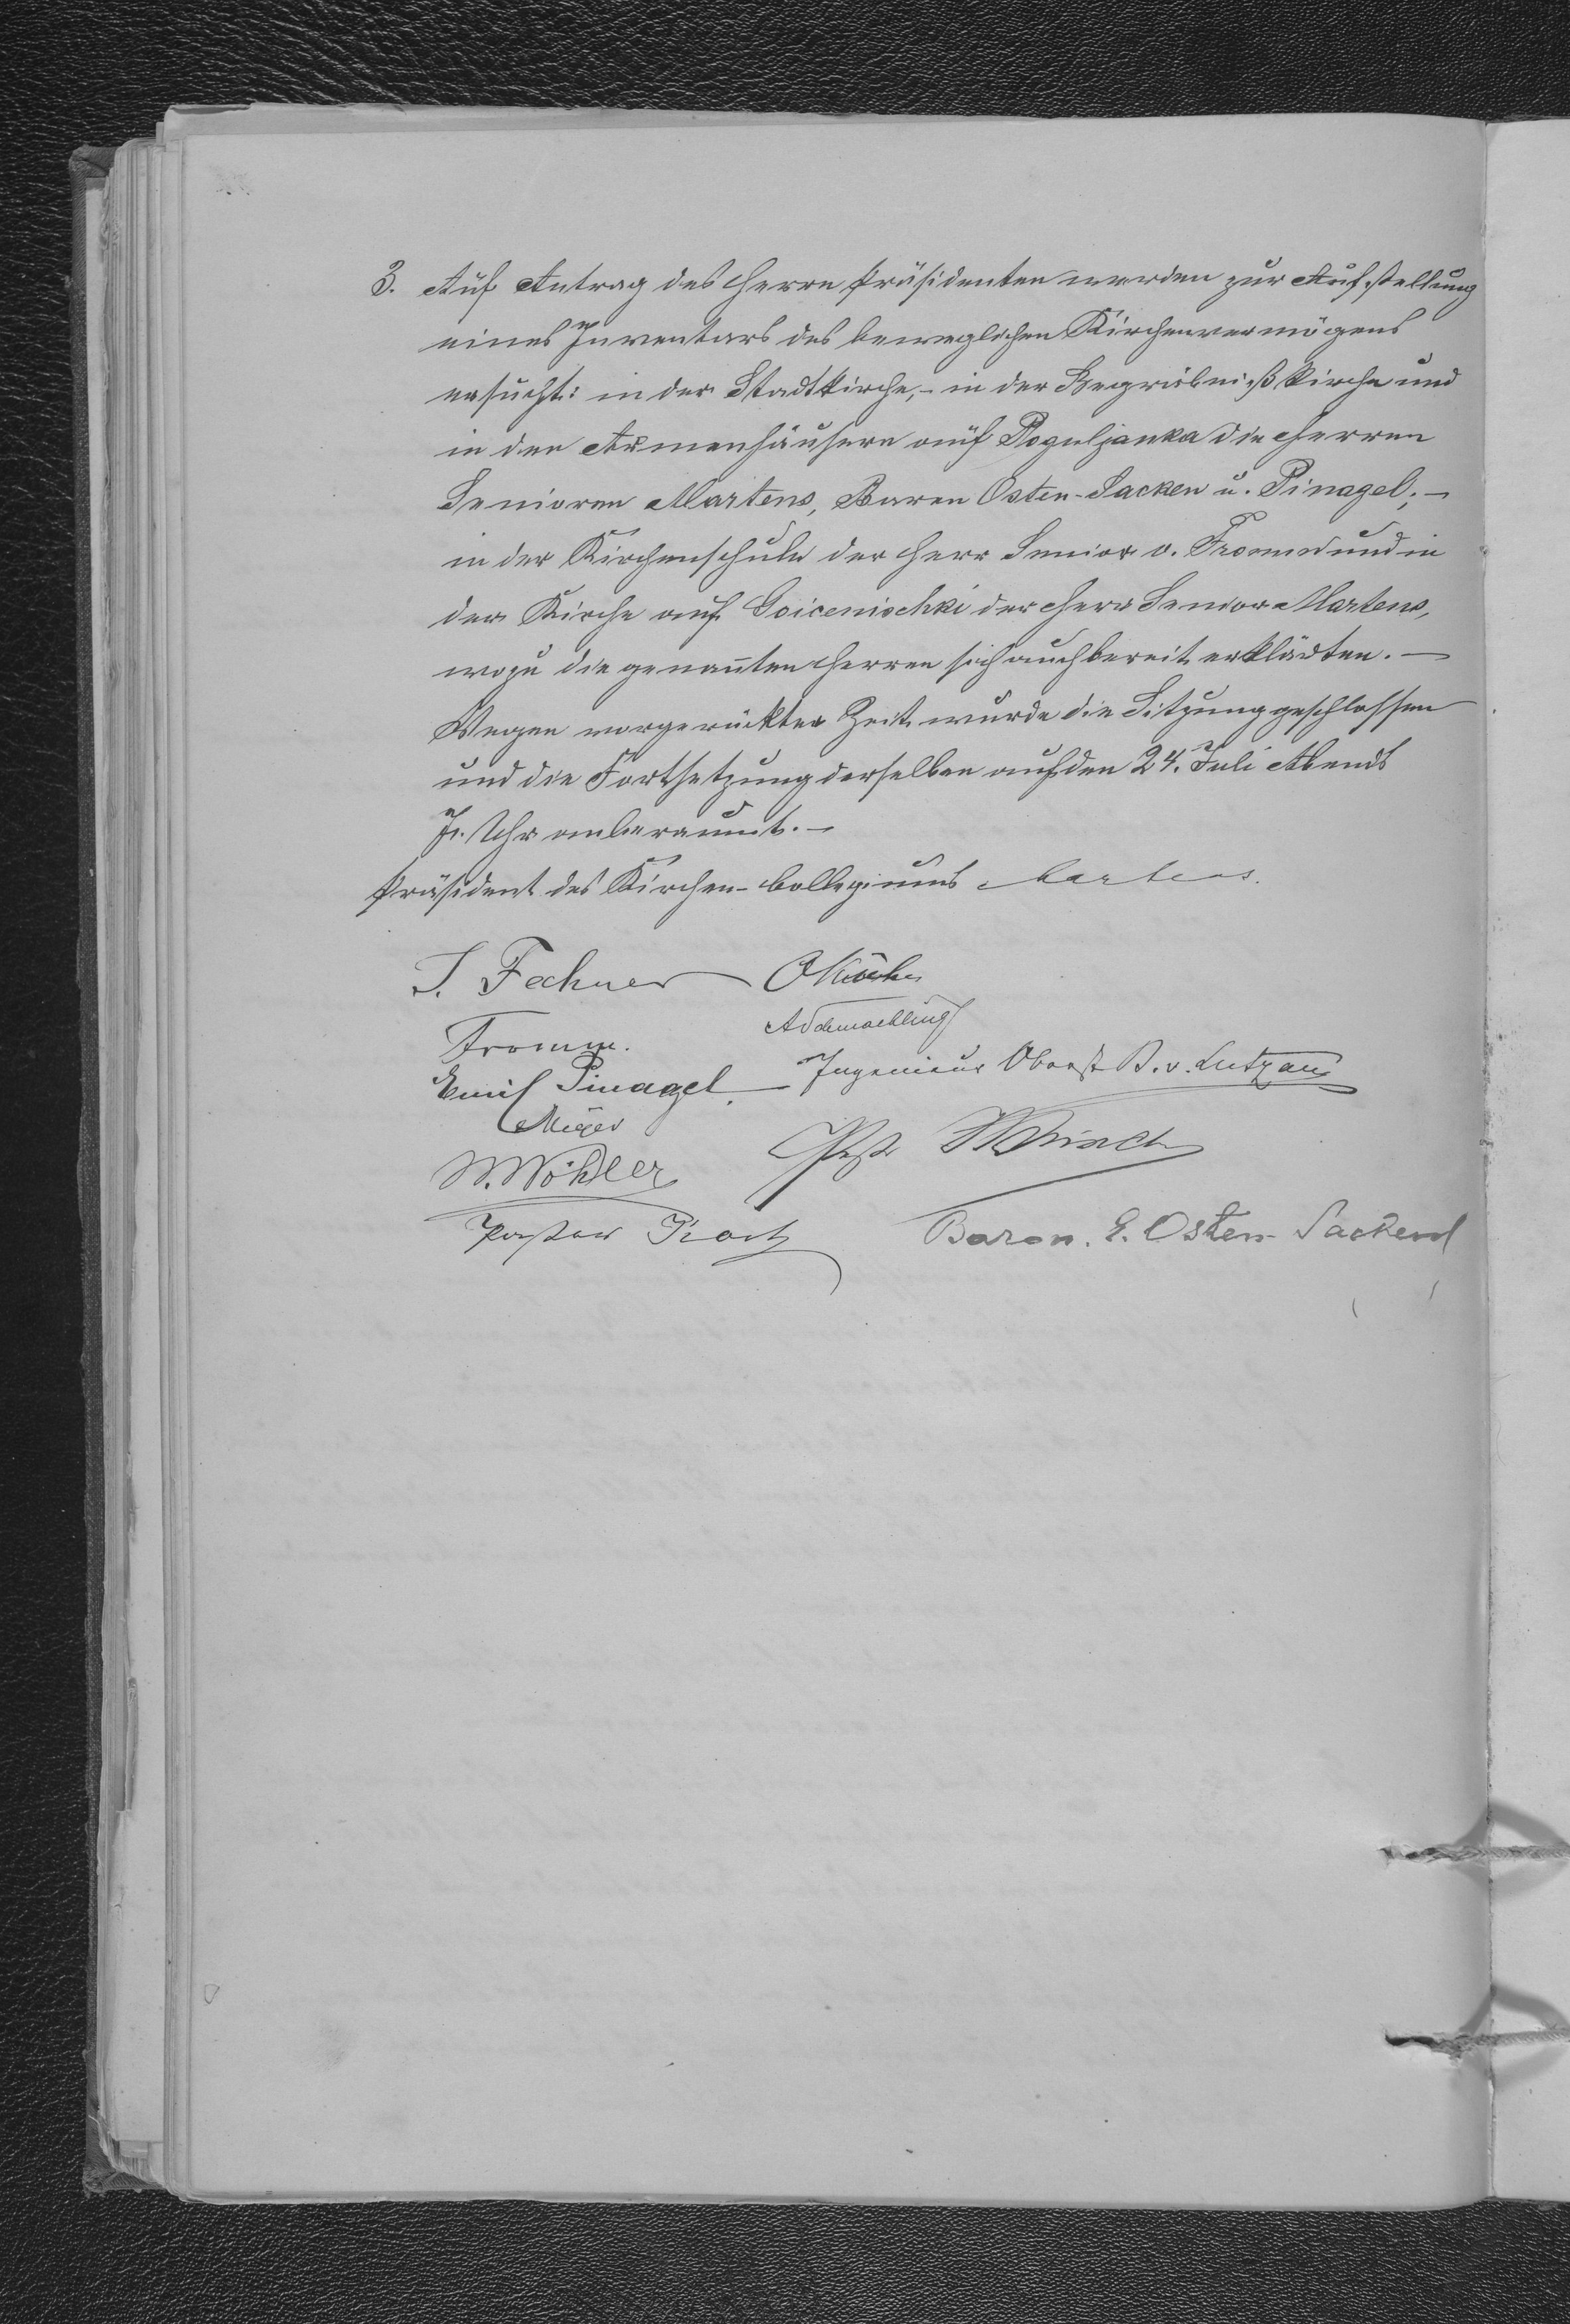 3. Auf Antrag des Herrn Präsidenten werden zur Aufstellung
eines Inventars des beweglichen Kirchenvermögens
ersucht: in der Stadtkirche, – in der Begräbnißkirche und
in den Armenhäusern auf Poguljanka die Herren
Senioren Martens, Baron Osten-Sacken u. Pinagel; –
in der Kirchenschule der Herr Senior v. Fromm und in
der Kirche auf Goicenischki der Herr Senior Martens,
wozu die genannten Herren sich auch bereit erklärten. –
Wegen vorgerückter Zeit wurde die Sitzung geschlossen
und die Fortsetzung derselben auf den 24. Juli Abends
Uhr anberaumt. –
Präsident des Kirchen-Collegiums Martens.
J. Fechner
Fromm.
Emil Pinagel.
Meyer
W. Wöhler
Pastor
A Schmaehling
Ingenieur Oberst B. v. Lutzau
Baron. E. Osten-Sacken